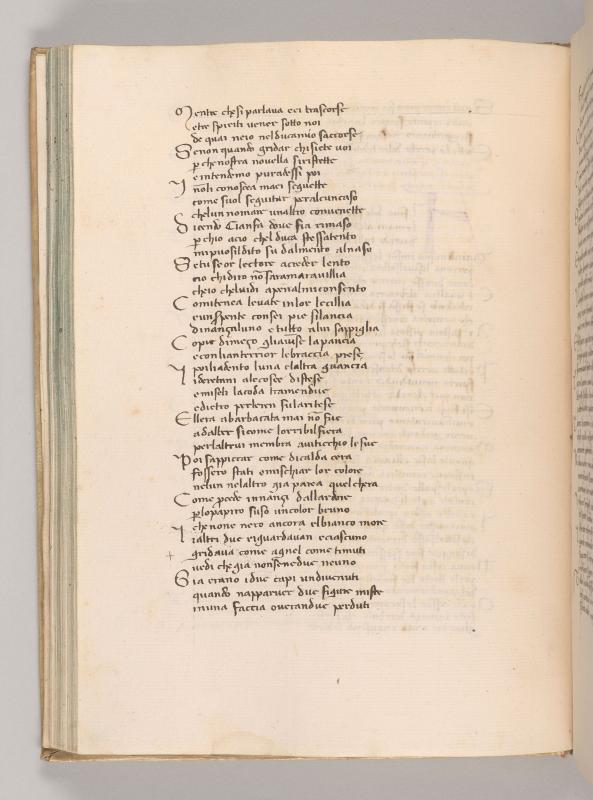 Mentre chesi parlava eei trascorse
etre spiriti uener sotto noi
de quai neio nelducamio saccorse
Senon quando gridar chisiete voi
per chenostra novella siristette
e intendemo puradessi poi
I noli conoscea maei seguette
come suol seguitar peralcuncaso
chelun nomar unaltro convenette
Dicendo Cianfa dove fia rimaso
per chio acio chel duca stessatento
mipuosildito su dalmento alnaso
Setuseor lectore acreder lento
cio chidiro non sara maravillia
cheio cheluidi apenalmiconsento
Comitenea levate inlor lecillia
eunserpente consei pie silancia
dinançialuno e tutto alui sappiglia
Copie dimeço gliavinse lapancia
econlianterrior lebraccia prese
poiliadento luna elaltra guancia
Lideretani alecosce distese
emiseli lacoda tramendue
edietro perleren sularitese
Ellera abarbacata mai non fue
adalber sicome lorribilfiera
perlaltrui membra auiticchio lesue
Poi sappiccar come dicalda cera
fossero stati emischiar lor colore
nelun nelaltro gia parea quelchera
Come procede innançi dallardore
per lopapiro suso uncolor bruno
chenone nero ancora elbianco more
Lialtri due riguardavan eciascuno
gridava come agnel come timuti
vedi chegia nonsenedue neuno
Gia erano idue capi undivenuti
quando napparuer due figure miste
inuna faccia overandue perduti